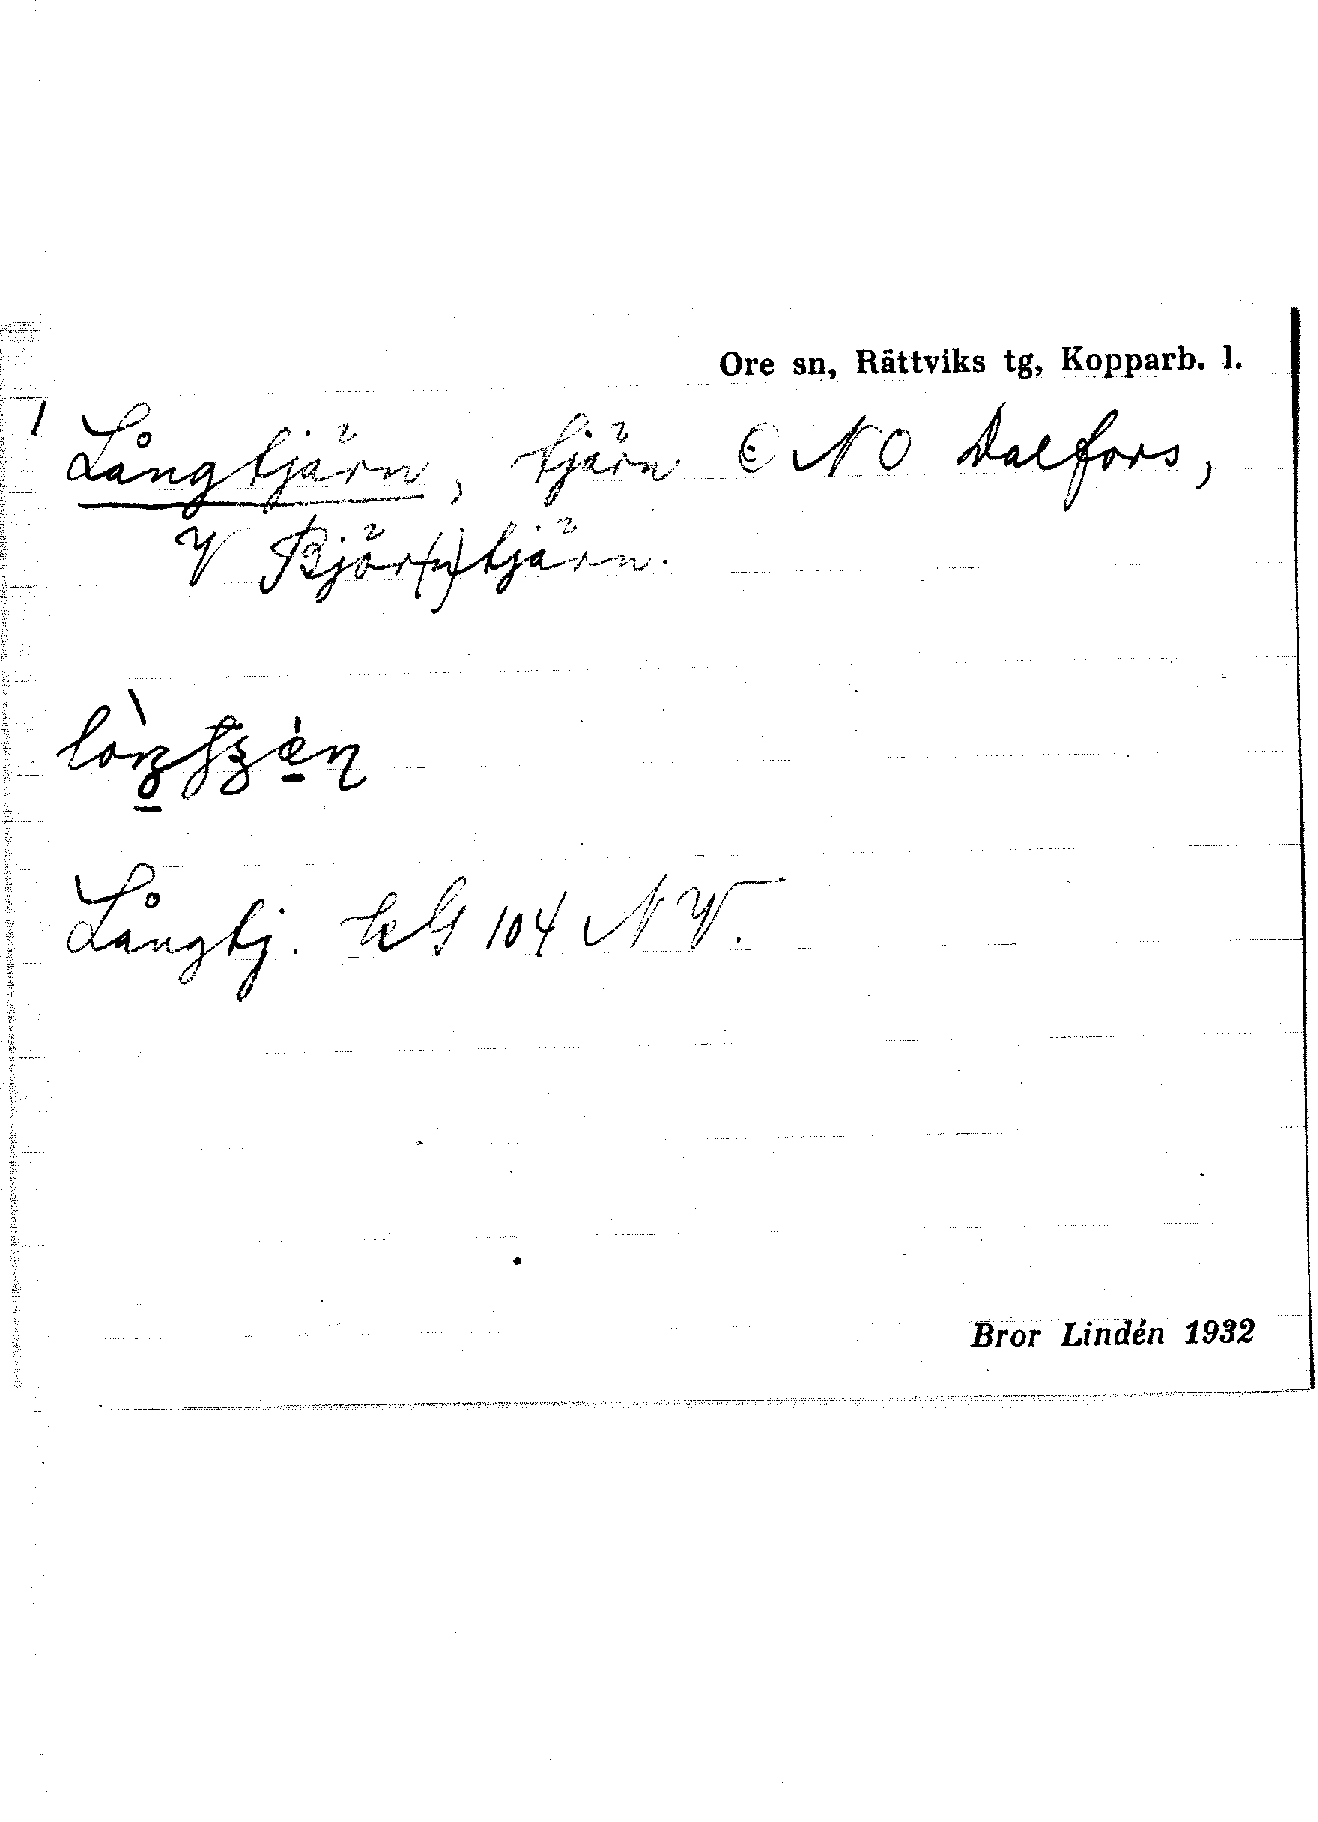 Ore sn, Rättviks tg, Kopparb. l.
1 Långtjärn, tjärn NO Dalfors,
V Björ(n)tjärn.
Långtj. 104 NV.
Bror Lindén 1932